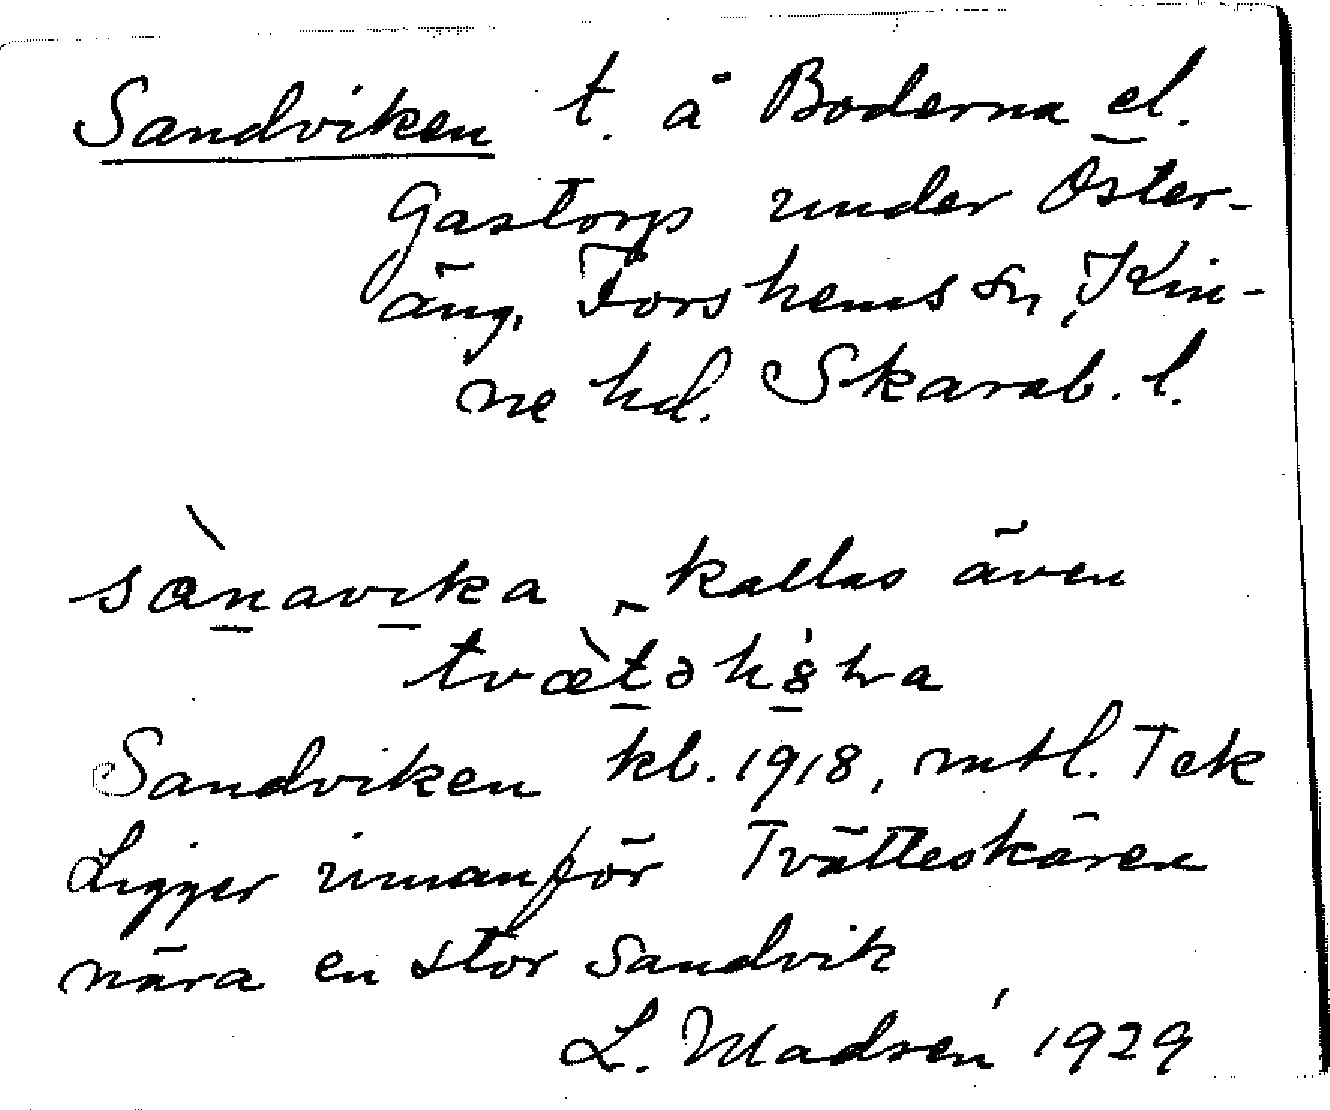 Sandviken t. å Boderna el.
Gastorp under Öster-
äng, Forshems sn, Kin-
ne hd. Skarab. l.
sànavika, kallas även
tvætəhɵ́ɫa
Sandviken kb. 1918, mtl. Tek
Ligger innanför Tvätteskären
nära en stor Sandvik
L. Madsén 1929